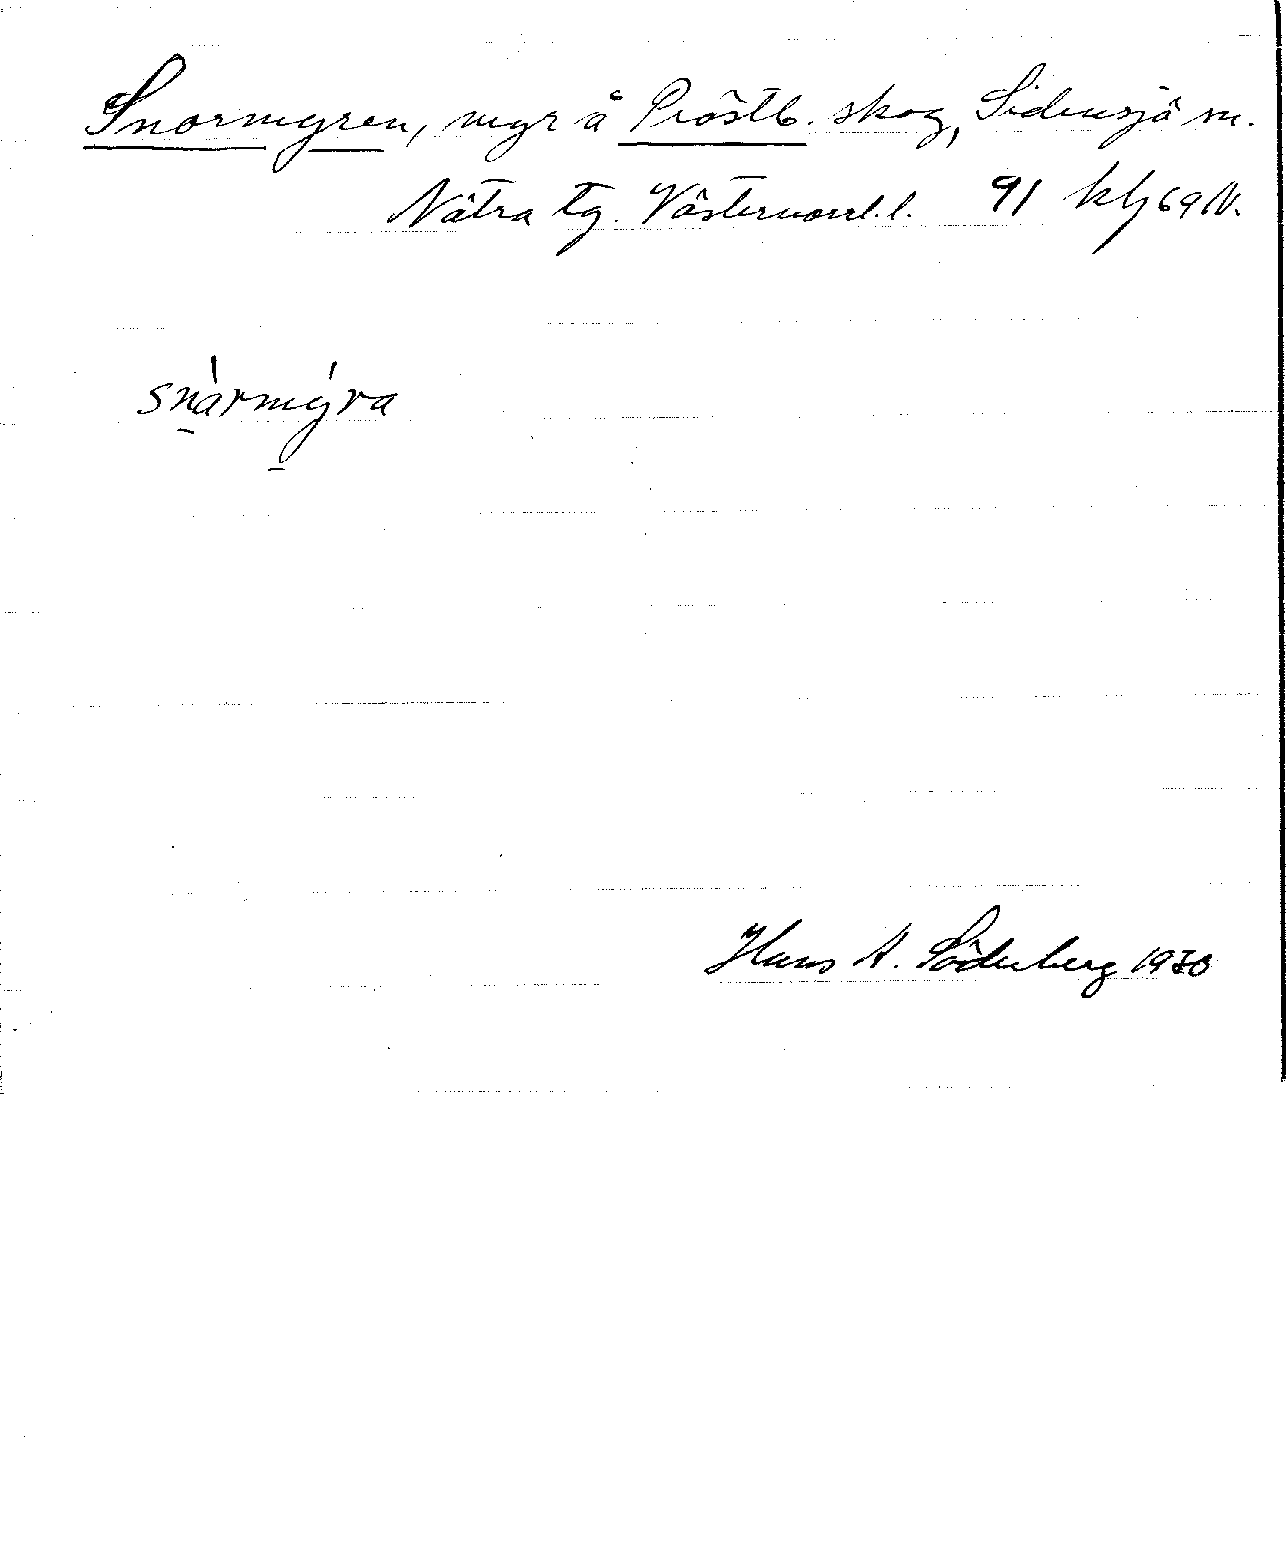 Snormyren, myr å Pröstb. skog, Sidensjö sn.
Nätra tg. Västernorrl. l. 91 klj 69 N.
snàrmýra
Hans A. Söderberg 1930